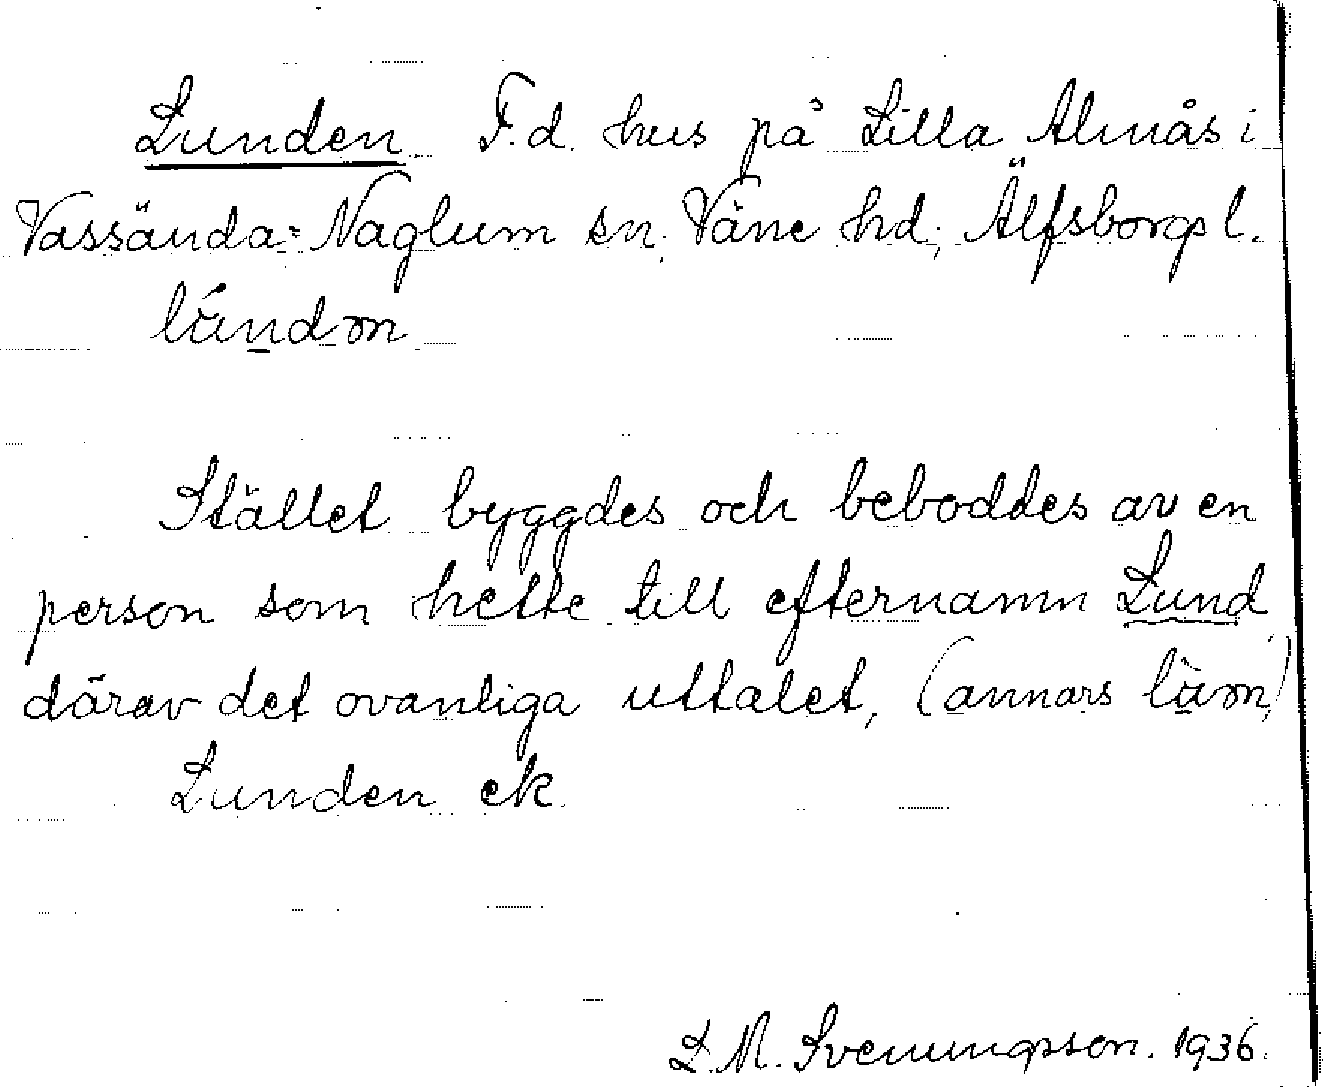 Lunden F.d. hus på Lilla Almås i
Vassända-Naglum sn. Väne hd; Älfsborgs l.
Stället byggdes och beboddes av en
person som hette till efternamn Lund
därav det ovanliga uttalet, (annars
Lunden ek.
L.M. Svenungsson. 1936.